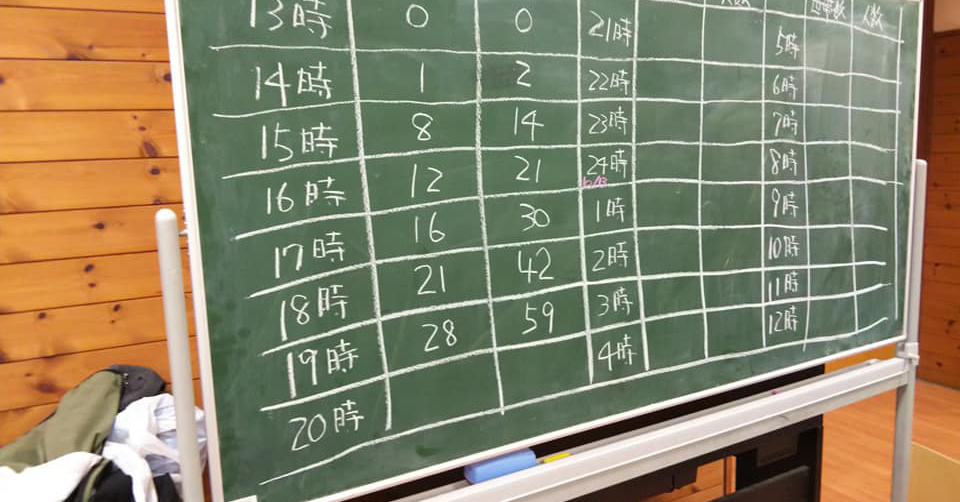 世帯数 人数
13時 0 0 21時 5時
14時 1 2 22時 6時
15時 8 14 23時 7時
16時 12 21 24時 8時
17時 16 30 1時 9時
18時 21 42 2時 10時
19時 28 59 3時 11時
20時 4時 12時